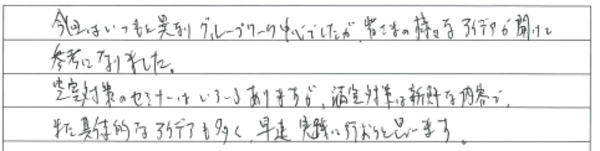 今回はいつもと異なりグループワーク中心でしたが、皆さまの様々なアイデアが聞けて
参考になりました。
空室対策のセミナーはいろいろありますが、満室対策は新鮮な内容で、
また具体的なアイデアも多く、早速実践に行おうと思います。